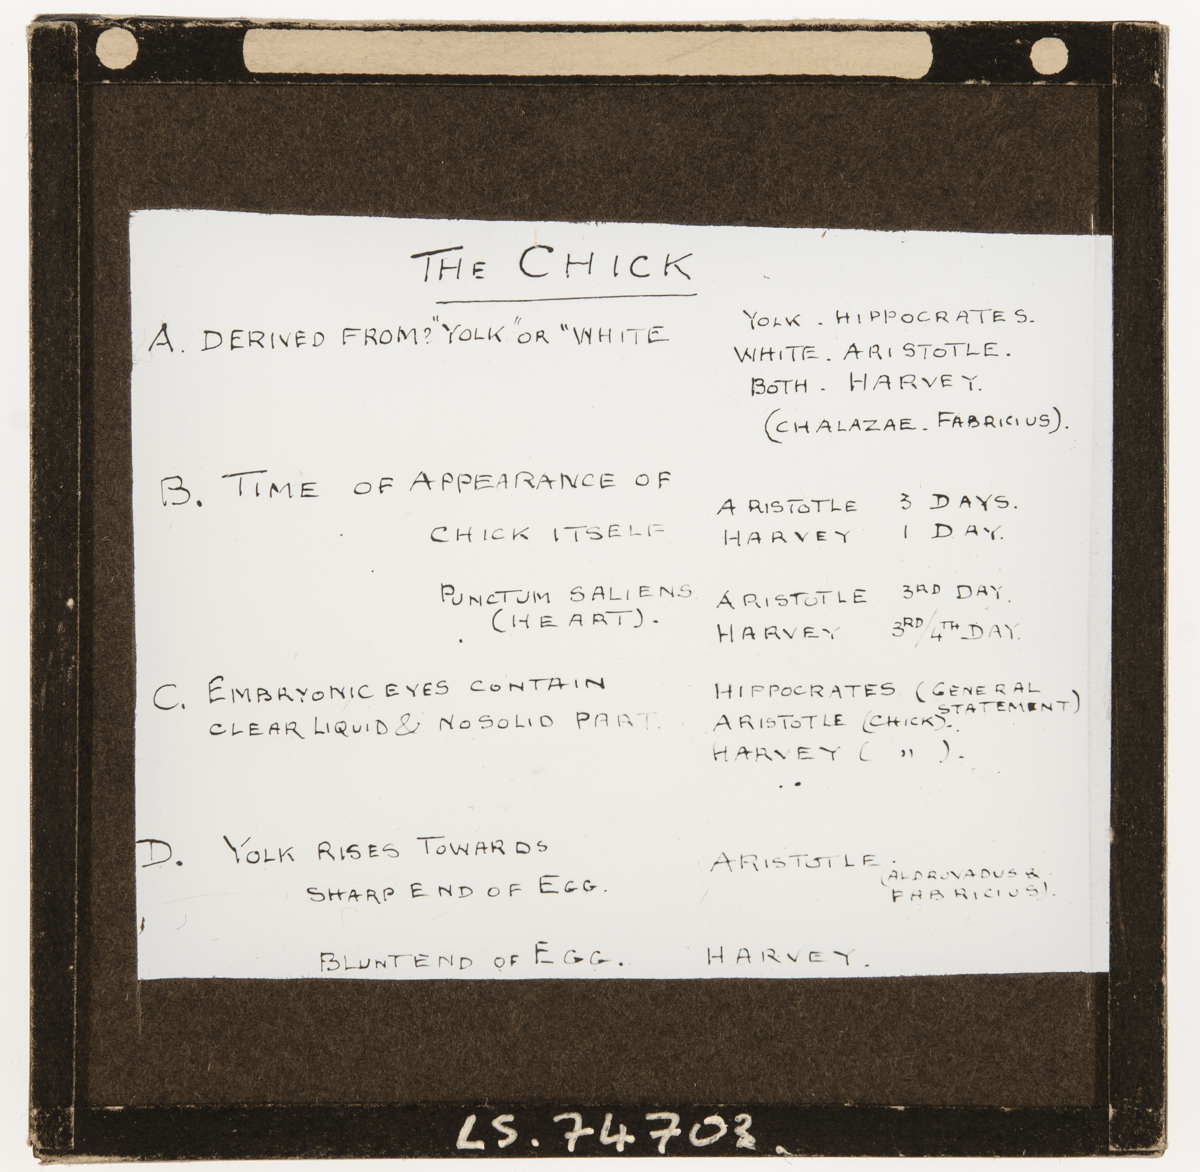 THE CHICK
A. DERIVED FROM? "YOLK" OR "WHITE
YOLK . HIPPOCRATES.
WHITE. ARISTOTLE.
BOTH. HARVEY.
(CHALAZAE. FABRICIUS).
B. TIME OF APPEARANCE OF
CHICK ITSELF
ARISTOTLE 3 DAYS.
HARVEY 1 DAY.
PUNCTUM SALIENS
(HEART).
ARISTOTLE 3RD DAY.
HARVEY 3RD/4TH DAY.
C. EMBRYONIC EYES CONTAIN
CLEAR LIQUID & NO SOLID PART.
HIPPOCRATES (GENERAL
STATEMENT)
ARISTOTLE (CHICK).
HARVEY ( " ).
D. YOLK RISES TOWARDS
SHARP END OF EGG.
ARISTOTLE.
(ALDROVADUS &
FABRICIUS).
BLUNT END OF EGG. HARVEY.
LS. 74703.